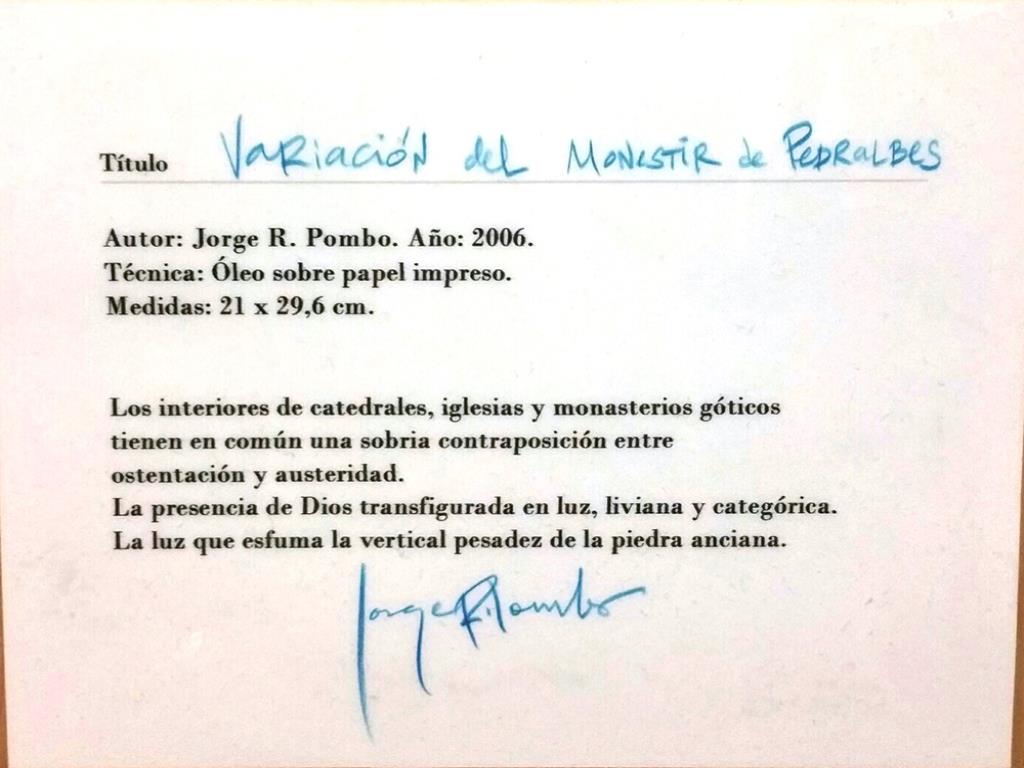 Título Variación del Monestir de Pedralbes
Autor: Jorge R. Pombo. Año: 2006.
Técnica: Óleo sobre papel impreso.
Medidas: 21 x 29,6 cm.
Los interiores de catedrales, iglesias y monasterios góticos
tienen en común una sobria contraposición entre
ostentación y austeridad.
La presencia de Dios transfigurada en luz, liviana y categórica.
La luz que esfuma la vertical pesadez de la piedra anciana.
Jorge R. Pombo